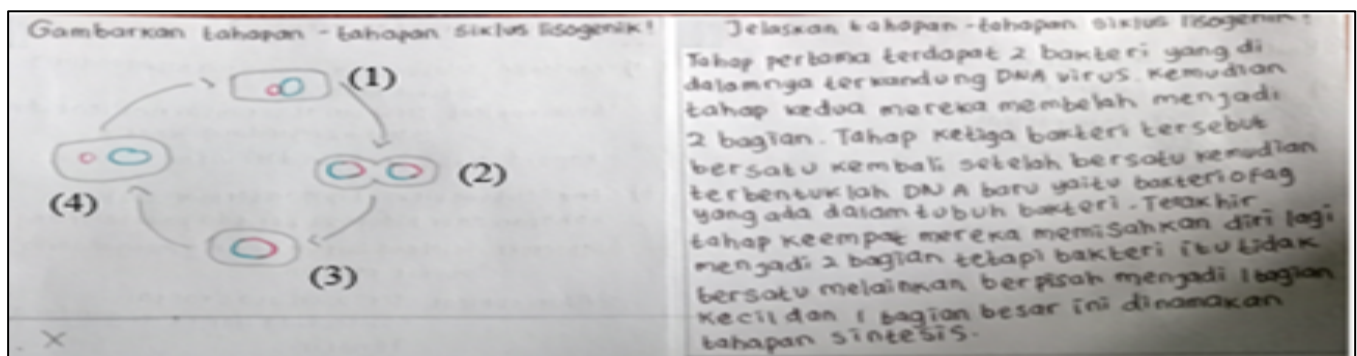 Gambarkan tahapan - tahapan siklus lisogenik!
(1)
(2)
(3)
(4)
Jelaskan tahapan-tahapan siklus lisogenik!
Tahap pertama terdapat 2 bakteri yang di
dalamnya terkandung DNA virus. Kemudian
tahap kedua mereka membelah menjadi
2 bagian. Tahap ketiga bakteri tersebut
bersatu kembali setelah bersatu kemudian
terbentuklah DNA baru yaitu bakteriofag
yang ada dalam tubuh bakteri. Terakhir
tahap keempat mereka memisahkan diri lagi
menjadi 2 bagian tetapi bakteri itu tidak
bersatu melainkan berpisah menjadi 1 bagian
kecil dan 1 bagian besar ini dinamakan
tahapan sintesis.